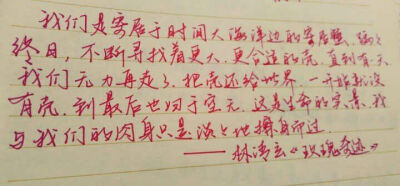 我们是寄居于时间大海洋边的寄居蟹，踽踽
终日，不断寻找着更大、更合适的壳，直到有一天
我们无力再走了，把壳还给世界。一开始就没
有壳，到最后也归于空无，这是生命的实景，我
与我们的肉身只是淡淡地擦身而过。
——林清玄《玫瑰奇迹》